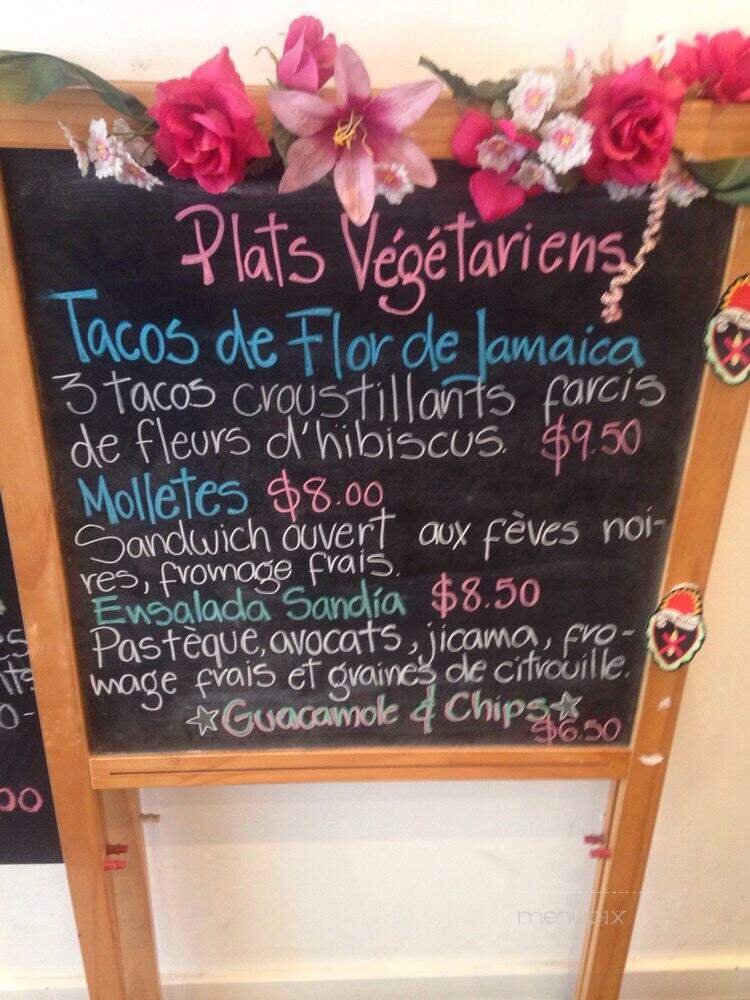 Plats Végétariens
Tacos de Flor de Jamaica
3 tacos croustillants farcis
de fleurs d'hibiscus. $9.50
Molletes $8.00
Sandwich ouvert aux fèves noi-
res, fromage frais.
Ensalada Sandía $8.50
Pastèque, avocats, jicama, fro-
mage frais et graines de citrouille.
☆Guacamole & Chips☆
$6.50
00
menupix